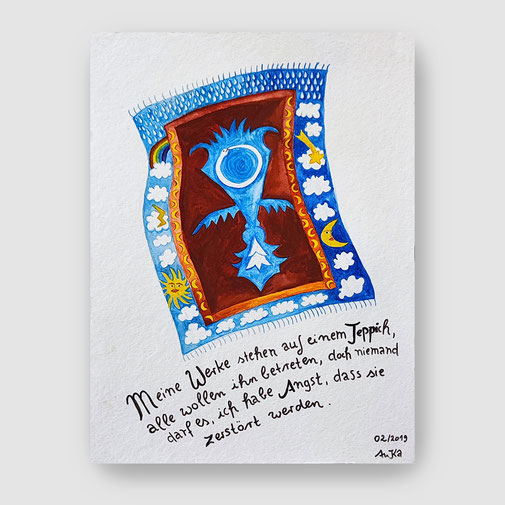 Meine Werke stehen auf einem Teppich,
alle wollen ihn betreten, doch niemand
darf es, ich habe Angst, dass sie
zerstört werden.
02/2019
AnKa